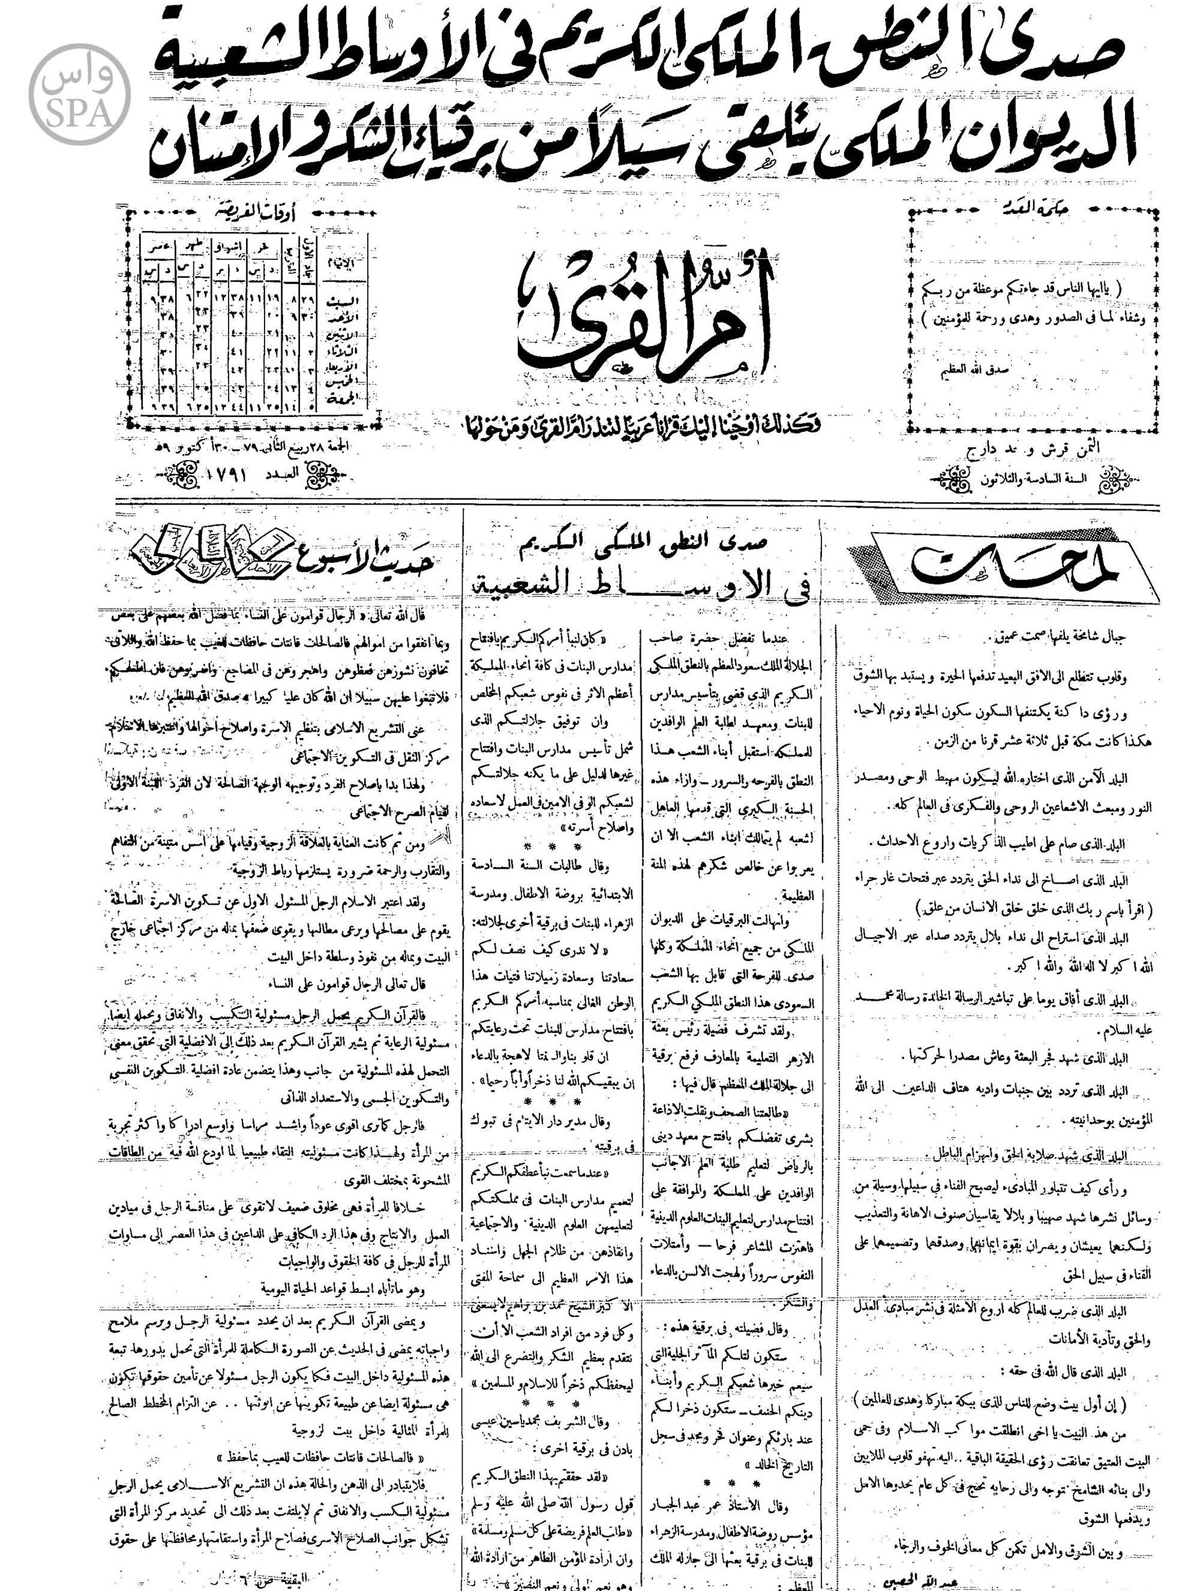 صدى النطق الملكى الكريم فى الأوساط الشعبية
الديوان الملكى يتلقى سيلاً من برقيات الشكر والامتنان
واس
SPA
حكمة العدد
( ياايها الناس قد جاءتكم موعظة من ربكم
وشفاء لما فى الصدور وهدى ورحمة للمؤمنين )
صدق الله العظيم
الثمن قرش و
دارج
السنة السادسة والثلاثون
أم القرى
وكذلك أوحينا إليك قرآنا عربيا لتنذر أم القرى ومن حولها
أوقات الفريضة
الايام
فجر
اشراق
ظهر
عصر
السبت
الأحد
الاثنين
الثلاثاء
الأربعاء
الخميس
الجمعة
الجمعة ٢٨ ربيع الثانى ٧٩ — ٣٠ أكتوبر ٥٩
العدد ١٧٩١
لمحات
جبال شامخة يلفها صمت عميق .
وقلوب تتطلع الى الافق البعيد تدفعها الحيرة ويستبد بها الشوق
ورؤى داكنة يكتنفها السكون سكون الحياة ونوم الاحياء
هكذا كانت مكة قبل ثلاثة عشر قرنا من الزمن .
البلد الآمن الذى اختاره الله ليكون مهبط الوحى ومصدر
النور ومبعث الاشعاعين الروحى والفكرى فى العالم كله .
البلد الذى صام على اطيب الذكريات واروع الاحداث .
البلد الذى اصاخ الى نداء الحق يتردد عبر فتحات غار حراء
( اقرأ باسم ربك الذى خلق خلق الانسان من علق )
البلد الذى استراح الى نداء بلال يتردد صداه عبر الاجيال
الله اكبر لا اله الا الله والله اكبر .
البلد الذى أفاق يوما على تباشير الرسالة الخالدة رسالة محمد
عليه السلام .
البلد الذى شهد فجر البعثة وعاش مصدرا لحركتها .
البلد الذى تردد بين جنبات واديه هتاف الداعين الى الله
المؤمنين بوحدانيته .
البلد الذى شهد صلابة الحق وانهزام الباطل .
ورأى كيف تتبلور المبادىء ليصبح الفناء فى سبيلها وسيلة من
وسائل نشرها شهد صهيبا وبلالا يقاسيان صنوف الاهانة والتعذيب
ولكنهما يعيشان ويصران بقوة ايمانهما وصدقهما وتصميمهما على
الفناء فى سبيل الحق
البلد الذى ضرب للعالم كله اروع الامثلة فى نشر مبادئ العدل
والحق وتأدية الأمانات
البلد الذى قال الله فى حقه :
( إن أول بيت وضع للناس للذى ببكة مباركا وهدى للعالمين )
من هذ البيت يا اخى انطلقت مواكب الاسلام وفى حمى
البيت العتيق تعانقت رؤى الحقيقة الباقية .. اليه تهفو قلوب الملايين
والى بنائه الشامخ تتوجه والى رحابه تحج فى كل عام يحدوها الامل
ويدفعها الشوق
وبين الشوق والامل تكمن كل معانى الخوف والرجاء
عبد الله الحصين
صدى النطق الملكى الكريم
فى الاوساط الشعبية
عندما تفضل حضرة صاحب
الجلالة الملك سعود المعظم بالنطق الملكى
الكريم الذى قضى بتأسيس مدارس
للبنات ومعهد لطلبة العلم الوافدين
للمملكة استقبل أبناء الشعب هذا
النطق بالفرحه والسرور — وازاء هذه
الحسنة الكبيرى التى قدمها العاهل
لشعبه لم يتمالك ابناء الشعب الا ان
يعربوا عن خالص شكرهم لهذه المنة
العظيمة .
وانهالت البرقيات على الديوان
الملكى من جميع أنحاء المملكة وكلها
صدى للفرحة التى قابل بها الشعب
السعودى هذا النطق الملكى الكريم
ولقد تشرف فضيلة رئيس بعثة
الازهر التعليمة بالمعارف فرفع برقية
الى جلالة الملك المعظم قال فيها :
« طالعتنا الصحف ونقلت الاذاعة
بشرى تفضلكم بافتتاح معهد دينى
بالرياض لتعليم طلبة العلم الاجانب
الوافدين على المملكة والموافقة على
افتتاح مدارس لتعليم البنات العلوم الدينية
فاهتزت المشاعر فرحا — وأمتلات
النفوس سروراً ولهجت الالسن بالدعاء
والشكر .
وقال فضيلته فى برقية هذه :
ستكون لتلكم المآثر الجلية التى
سيعم خيرها شعبكم الكريم وأبناء
دينكم الحنيف — ستكون ذخرا لكم
عند بارئكم وعنوان فخر ومجد فى سجل
التاريخ الخالد »
* * *
وقال الأستاذ عمر عبد الجبار
مؤسس روضة الاطفال ومدرسة الزهراء
للبنات فى برقية بعثها الى جلالة الملك
المعظم :
« كان لنبأ أمركم الكريم بافتتاح
مدارس البنات فى كافة انحاء المملكة
أعظم الاثر فى نفوس شعبكم المخلص
وان توفيق جلالتكم الذى
شمل تأسيس مدارس البنات وافتتاح
غيرها لدليل على ما يكنه جلالتكم
لشعبكم الوفى الامين فى العمل لاسعاده
واصلاح أسرته »
* * *
وقال طالبات السنة السادسة
الابتدائية بروضة الاطفال ومدرسة
الزهراء للبنات فى برقية أخرى لجلالته :
« لا ندرى كيف نصف لكم
سعادتنا وسعادة زميلاتنا فتيات هذا
الوطن الغالى بمناسبه أمركم الكريم
بافتتاح مدارس للبنات تحت رعايتكم
ان قلوبنا
لاهجة بالدعاء
ان يبقيكم الله لنا ذخراً وأباً رحيما » .
* * *
وقال مدير دار الايتام فى تبوك
فى برقيته .
« عندما سمعت نبأ عطفكم الكريم
لتعميم مدارس البنات فى مملكتكم
لتعليمهن العلوم الدينية والاجتماعية
وانقاذهن من ظلام الجهل واسناد
هذا الامر العظيم الى سماحة المفتى
الاكبر الشيخ محمد بن براهيم لا يسعنى
وكل فرد من افراد الشعب الا أن
نتقدم بعظيم الشكر والتضرع الى الله
ليحفظكم ذخراً للاسلام والمسلمين »
* * *
وقال الشريف محمد ياسين عيسى
بادن فى برقية اخرى :
« لقد حققتم بهذا النطق الكريم
قول رسول الله صلى الله عليه وسلم
« طلب العلم فريضة على كل مسلم ومسلمة »
وان ارادة المؤمن الطاهر من ارادة الله
وهو نعم المولى ونعم النصير »
حديث الأسبوع
قال الله تعالى « الرجال قوامون على النساء بما فضل الله بعضهم على بعض
وبما انفقوا من اموالهم فالصالحات قانتات حافظات للغيب بما حفظ الله واللاتى
تخافون نشوزهن فعظوهن واهجروهن فى المضاجع واضربوهن فان اطعنكم
فلا تبغوا عليهن سبيلا ان الله كان عليا كبيرا » صدق الله العظيم
عنى التشريع الاسلامى بتنظيم الاسرة واصلاح أحوالها واعتبرها الاسلام
مركز الثقل فى التكوين الاجتماعى
ولهذا بدا باصلاح الفرد وتوجيهه الوجهة الصالحة لان الفرد اللبنة الاولى
لقيام الصرح الاجتماعى
ومن ثم كانت العناية بالعلاقة الزوجية وقيامها على اسس متينة من التفاهم
والتقارب والرحمة ضرورة يستلزمها رباط الزوجية
ولقد اعتبر الاسلام الرجل المسئول الاول عن تكوين الاسرة الصالحة
يقوم على مصالحها ويرعى مطالبها ويقوى ضعفها بماله من مركز اجتماعى خارج
البيت وبماله من نفوذ وسلطة داخل البيت
قال تعالى الرجال قوامون على النساء
فالقرآن الكريم يحمل الرجل مسئولية التكسب والانفاق ويحمله ايضا
مسئولية الرعاية ثم يشير القرآن الكريم بعد ذلك إلى الافضلية التى تحقق معنى
التحمل لهذه المسئولية من جانب وهذا يتضمن عادة افضلية التكوين النفسى
والتكوين الجسمى والاستعداد الذاتى
فالرجل كما ترى اقوى عوداً واشد مراسا واوسع ادراكا واكثر تجربة
من المرأة ولهذا كانت مسئوليته التقاء طبيعيا لما اودع الله فيه من الطاقات
المشحونة بمختلف القوى
خلافا للمرأة فهى مخلوق ضعيف لا تقوى على منافسة الرجل فى ميادين
العمل والانتاج وفى هذا الرد الكافى على الداعين فى هذا العصر الى مساوات
المرأة للرجل فى كافة الحقوق والواجبات
وهو ما تأباه ابسط قواعد الحياة اليومية
ويمضى القرآن الكريم بعد ان يحدد مسئولية الرجل ويرسم ملامح
واجباته يمضى فى الحديث عن الصورة الكاملة للمرأة التى تحمل بدورها تبعة
هذه المسئولية داخل البيت فكما يكون الرجل مسئولا عن تأمين حقوقها تكون
هى مسئولة ايضا عن طبيعة تكوينها عن انوثتها .. عن التزام المخطط الصالح
للمرأة المثالية داخل بيت لزوجية
« فالصالحات قانتات حافظات للغيب بما حفظ »
فلا يتبادر الى الذهن والحالة هذه ان التشريع الاسلامى يحمل الرجل
مسئولية الكسب والانفاق ثم لا يلتفت بعد ذلك الى تحديد مركز المرأة التى
تشكل جوانب الصلاح الاسرى فصلاح المرأة واستقامتها ومحافظتها على حقوق
البقية ص ٦